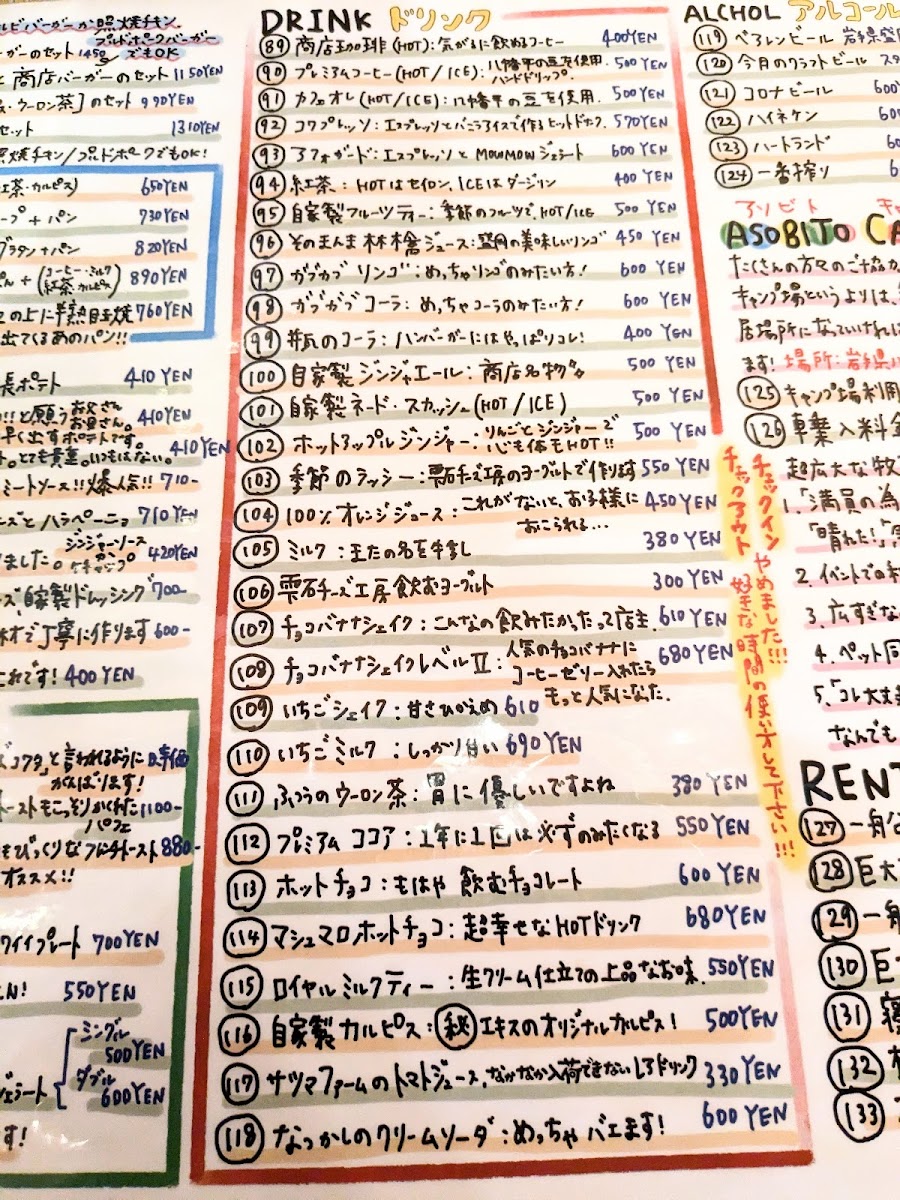 ルビバーガーか照焼チキン
プルドポークバーガー
ーガーのセット 1450 でもOK
と 商店バーガーのセット 1150YEN
ウーロン茶]のセット 990YEN
セット 1310YEN
照焼チキン/プルドポークでもOK!
紅茶・カルピス) 650YEN
ープ+パン 730YEN
グラタン+パン 820YEN
ぱん+(コーヒー・ミルク 紅茶・カルピス) 890YEN
の上に半熟目玉焼 760YEN
出てくるあのパン!!
長ポテト 410YEN
!!と願うお父さん お母さん。 410YEN
早く出すポテトです。
とても貴重。いつもはない。 410YEN
ミートソース!!爆人気!! 710-
ーズとハラペーニョ 710YEN
ました。ジンジャーソース 420YEN
ケチャップ
ズ、自家製ドレッシング 700-
材で丁寧に作ります 600-
これです! 400YEN
コワタ」と言われるように 時価
がんばります!
ーストもこっそりかくれた 1100-
パフェ
もびっくりなフレンチトースト 880-
オススメ!!
ワイイプレート 700YEN
N! 550YEN
シングル 500YEN
ジェラート
ダブル 600YEN
す!
DRINK ドリンク
89 商店珈琲(HOT):気がるに飲めるコーヒー 400YEN
90 プレミアムコーヒー(HOT/ICE):八幡平の豆を使用、ハンドドリップ。 500YEN
91 カフェオレ(HOT/ICE):八幡平の豆を使用。 500YEN
92 コワプレッソ:エスプレッソとバニラアイスで作るヒットドリンク。 570YEN
93 アフォガード:エスプレッソとMOWMOWジェラート 600YEN
94 紅茶:HOTはセイロン,ICEはダージリン 400YEN
95 自家製フルーツティー:季節のフルーツで,HOT/ICE 500YEN
96 そのまんま林檎ジュース:盛岡の美味しいリンゴ 450YEN
97 ガブガブリンゴ:めっちゃリンゴのみたい方! 600YEN
98 ガブガブコーラ:めっちゃコーラのみたい方! 600YEN
99 瓶のコーラ:ハンバーガーにはやっぱりコレ! 400YEN
100 自家製ジンジャエール:商店名物 500YEN
101 自家製ネード・スカッシュ(HOT/ICE) 500YEN
102 ホットアップルジンジャー:りんごとジンジャーで心も体もHOT!! 500YEN
103 季節のラッシー:雫石チーズ工房のヨーグルトで作ります 550YEN
104 100%オレンジジュース:これがないと、お子様におこられる… 450YEN
105 ミルク:またの名を牛乳 380YEN
106 雫石チーズ工房飲むヨーグルト 300YEN
107 チョコバナナシェイク:こんなの飲みたかったって店主。 610YEN
108 チョコバナナシェイクレベルⅡ:人気のチョコバナナにコーヒーゼリー入れたらもっと人気になった。 680YEN
109 いちごシェイク:甘さひかえめ 610
110 いちごミルク:しっかり甘い 690YEN
111 ふつうのウーロン茶:胃に優しいですよね 380YEN
112 プレミアムココア:1年に1回は必ずのみたくなる 550YEN
113 ホットチョコ:もはや飲むチョコレート 600YEN
114 マシュマロホットチョコ:超幸せなHOTドリンク 680YEN
115 ロイヤルミルクティー:生クリーム仕立ての上品なお味。 550YEN
116 自家製カルピス:㊙エキスのオリジナルカルピス! 500YEN
117 サツマファームのトマトジュース、なかなか入荷できないレアドリンク 330YEN
118 なつかしのクリームソーダ:めっちゃバエます! 600YEN
チェックイン
チェックアウト
やめました!!!
好きな時間の使い方して下さい!!!
ALCHOL アルコール
119 ベアレンビール 岩手県盛
120 今月のクラフトビール
121 コロナビール 600
122 ハイネケン 60
123 ハートランド 60
124 一番搾り 6
アソビト キャ
ASOBITO CA
たくさんの方々のご協力
キャンプ場というよりは、
居場所になっていければ
ます!場所:岩手県
125 キャンプ場利用
126 車乗入料金
超広大な牧
1.「満員の為
「晴れた!」
2.イベントでの
3.広すぎな
4.ペット同
5.「コレ大丈
なんでも
RENT
127 一般
128 巨大
129 一般
130 巨
131 寝
132
133